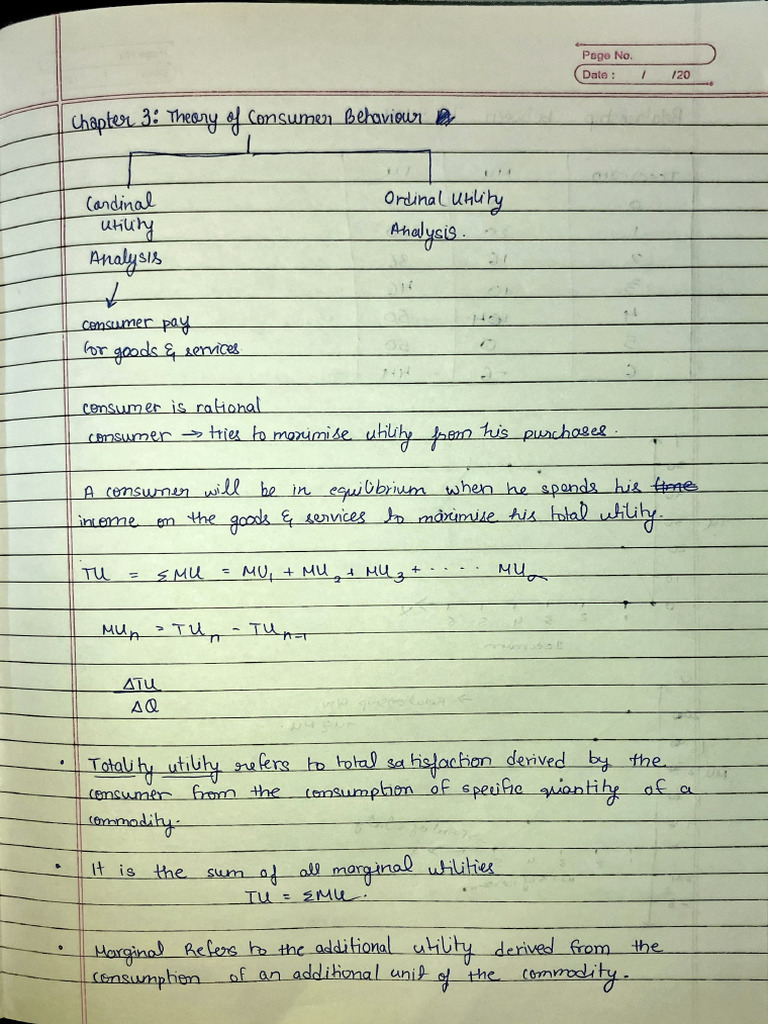 Page No.
Date : / /20
Chapter 3: Theory of Consumer Behaviour
Cardinal Ordinal Utility
Utility Analysis.
Analysis
↓
consumer pay
for goods & services
consumer is rational
consumer → tries to maximise utility from his purchases.
A consumer will be in equilibrium when he spends his time
income on the goods & services to maximise his total utility.
TU = ΣMU = MU₁ + MU₂ + MU₃ + ..... MU∞
MUn = TUn - TUn-1
ΔTU
ΔQ
• Totality utility refers to total satisfaction derived by the
consumer from the consumption of specific quantity of a
commodity.
• It is the sum of all marginal utilities
TU = ΣMU.
• Marginal Refers to the additional utility derived from the
consumption of an additional unit of the commodity.